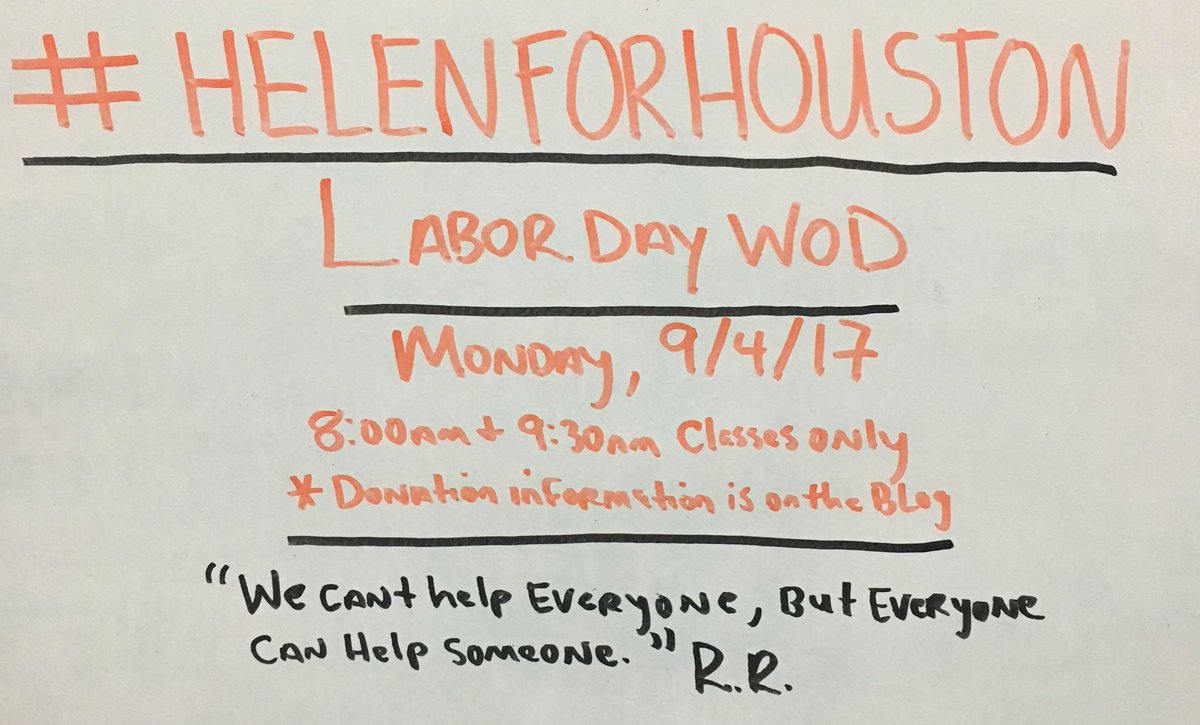 #HELENFORHOUSTON
LABOR DAY WOD
MONDAY, 9/4/17
8:00am + 9:30am Classes only
* Donation information is on the Blog
"We can't help Everyone, But Everyone
can Help someone." R.R.